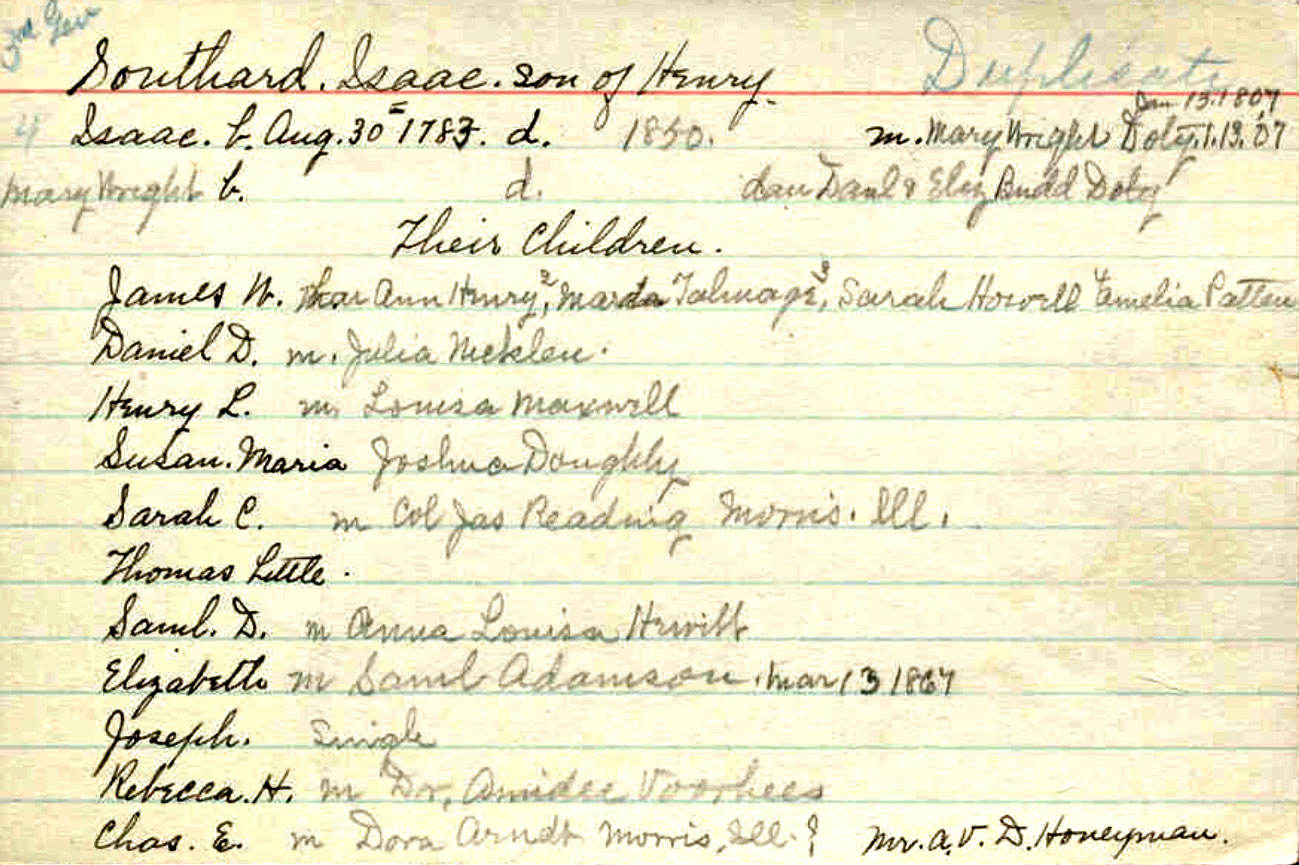 3rd Gen
Southard. Isaac. son of Henry. Duplicate
Jan 13. 1807
4 Isaac. b. Aug. 30 = 1783. d. 1850. m. Mary Wright Doty. 1.13.'07
Mary Wright b. d. dau Danl & Eliz Budd Doty
Their Children.
James W. Ann Henry, 2 Talmage, 3 Sarah Howell 4 Amelia Patten
Daniel D. m. Julia Nicklen.
Henry L. m. Louisa Maxwell
Susan. Maria Joshua Doughty
Sarah C. m Col Jas Reading Morris. Ill.
Thomas Little.
Saml. D. m Anna Louisa Hewitt
Elizabeth m Saml Adamson. Mar 13 1867
Joseph. Single
Rebecca. H. m Dr, Amidee Voorhees
Chas. E. m Dora Arndt Morris, Ill. ? Mr. A. V. D. Honeyman.